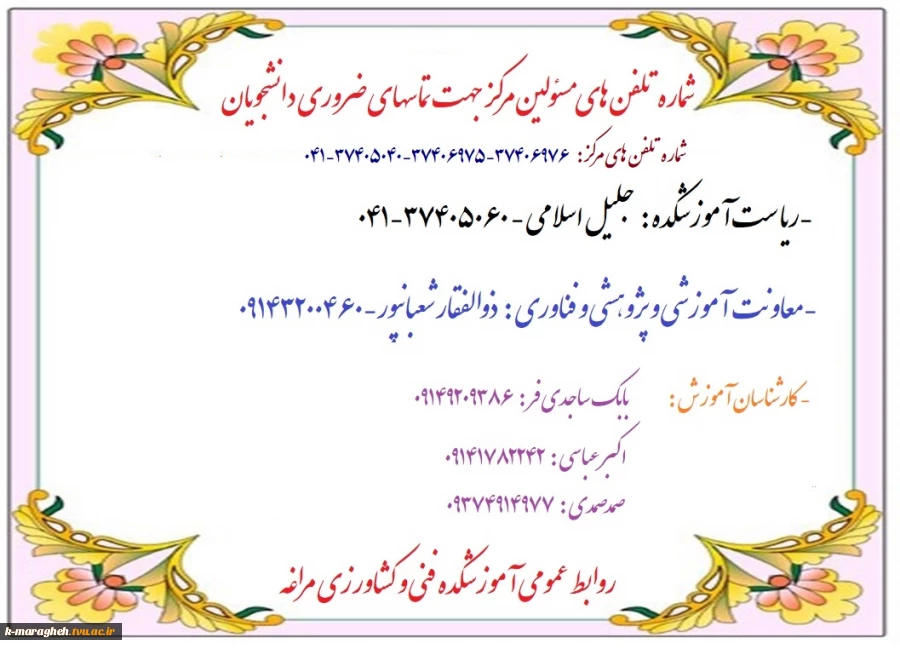 شماره تلفن های مسئولین مرکز جهت تماسهای ضروری دانشجویان
شماره تلفن های مرکز: ۳۷۴۰۶۹۷۶-۳۷۴۰۶۹۷۵-۳۷۴۰۵۰۴۰-۰۴۱
-ریاست آموزشکده : جلیل اسلامی - ۳۷۴۰۵۰۶۰-۰۴۱
-معاونت آموزشی و پژوهشی و فناوری : ذوالفقار شعبانپور - ۰۹۱۴۳۲۰۰۴۶۰
- کارشناسان آموزش : بابک ساجدی فر : ۰۹۱۴۹۲۰۹۳۸۶
اکبر عباسی : ۰۹۱۴۱۷۸۲۲۴۲
صمد صمدی : ۰۹۳۷۴۹۱۴۹۷۷
روابط عمومی آموزشکده فنی و کشاورزی مراغه
k-maragheh.tvu.ac.ir